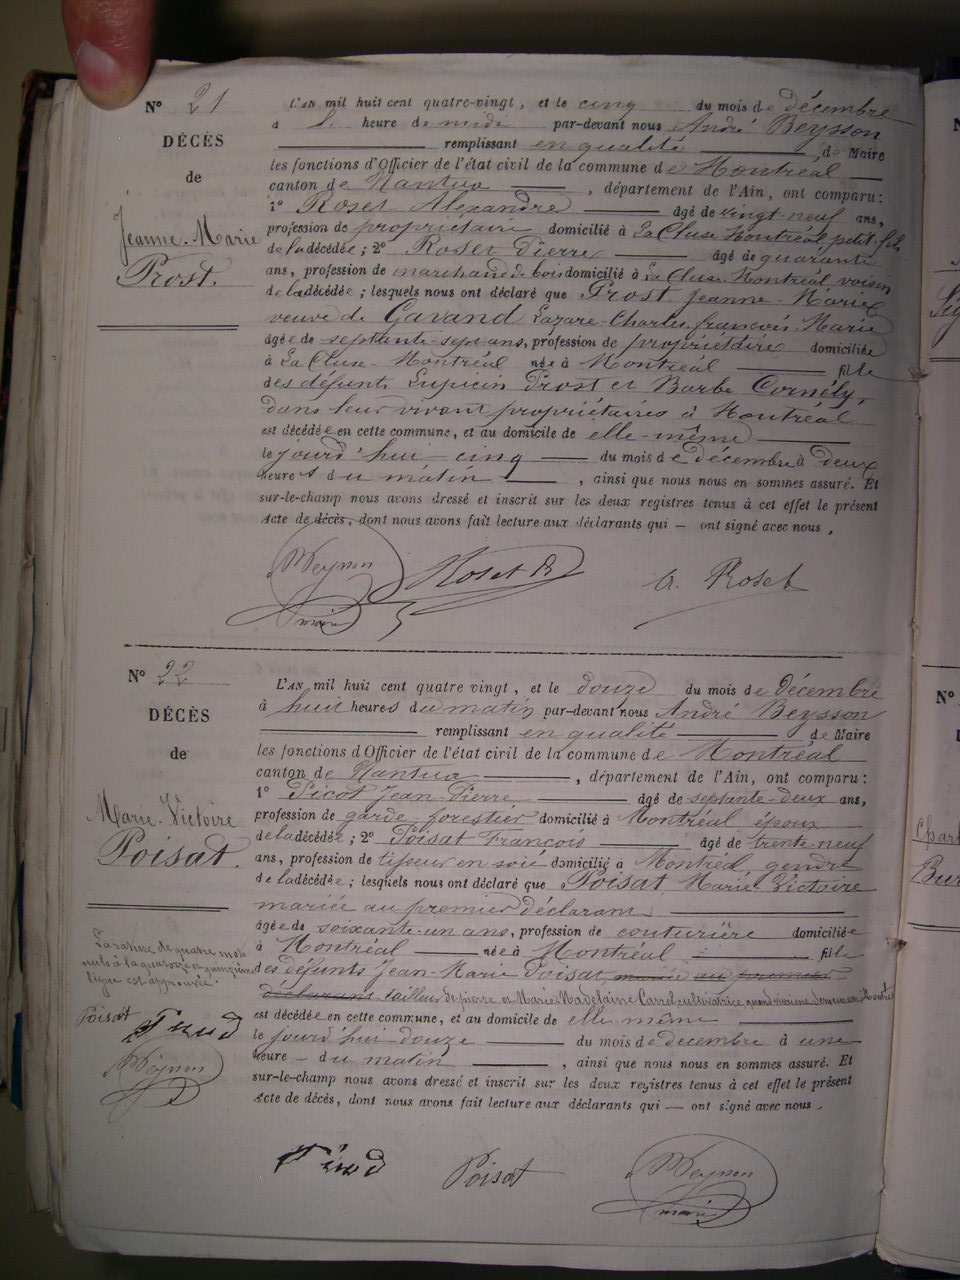 N° 21
DÉCÈS
de
Jeanne-Marie
Prost.
L'AN mil huit cent quatre-vingt, et le cinq du mois de décembre
à heure de midi par-devant nous André Beysson
remplissant en qualité de Maire
les fonctions d'Officier de l'état civil de la commune de Montréal
canton de Nantua, département de l'Ain, ont comparu:
1° Roset Alexandre âgé de vingt neuf ans,
profession de propriétaire domicilié à La Cluse Montréal petit-fils
de la décédée; 2° Roset Pierre âgé de quarante
ans, profession de marchand de bois domicilié à La Cluse Montréal voisin
de la décédée; lesquels nous ont déclaré que Prost Jeanne-Marie
veuve de Gavand Lazare-Charles françois-Marie
âgée de septante sept ans, profession de propriétaire domiciliée
à La Cluse-Montréal née à Montréal fille
des défunts Lupicin Prost et Barbe Cornély,
dans leur vivant propriétaires à Montréal
est décédée en cette commune, et au domicile de elle-même
le jourd'hui cinq du mois de décembre à deux
heures du matin, ainsi que nous nous en sommes assuré. Et
sur-le-champ nous avons dressé et inscrit sur les deux registres tenus à cet effet le présent
Acte de décès, dont nous avons fait lecture aux déclarants qui — ont signé avec nous.
Roset P.
a. Roset
maire
N° 22
DÉCÈS
de
Marie-Victoire
Poisat.
L'AN mil huit cent quatre vingt, et le douze du mois de décembre
à huit heures du matin par-devant nous André Beysson
remplissant en qualité de Maire
les fonctions d'Officier de l'état civil de la commune de Montréal
canton de Nantua, département de l'Ain, ont comparu:
1° Picot Jean-Pierre âgé de septante-deux ans,
profession de garde forestier domicilié à Montréal époux
de la décédée; 2° Poisat François âgé de trente neuf
ans, profession de tisseur en soie domicilié à Montréal gendre
de la décédée; lesquels nous ont déclaré que Poisat Marie Victoire
mariée au premier déclarant
âgée de soixante-un ans, profession de couturière domiciliée
à Montréal née à Montréal fille
des défunts Jean-Marie Poisat mariée au premier
déclarant tailleur de pierre et Marie Madelaine Carrel cultivatrice quand vivaient demeurant à Montréal
est décédée en cette commune, et au domicile de elle même
le jourd'hui douze du mois de décembre à une
heure — du matin, ainsi que nous nous en sommes assuré. Et
sur-le-champ nous avons dressé et inscrit sur les deux registres tenus à cet effet le présent
Acte de décès, dont nous avons fait lecture aux déclarants qui — ont signé avec nous.
La rature de quatre mots
nuls à la quatorze et quinzième
ligne est approuvée.
Poisat
Poisat
maire